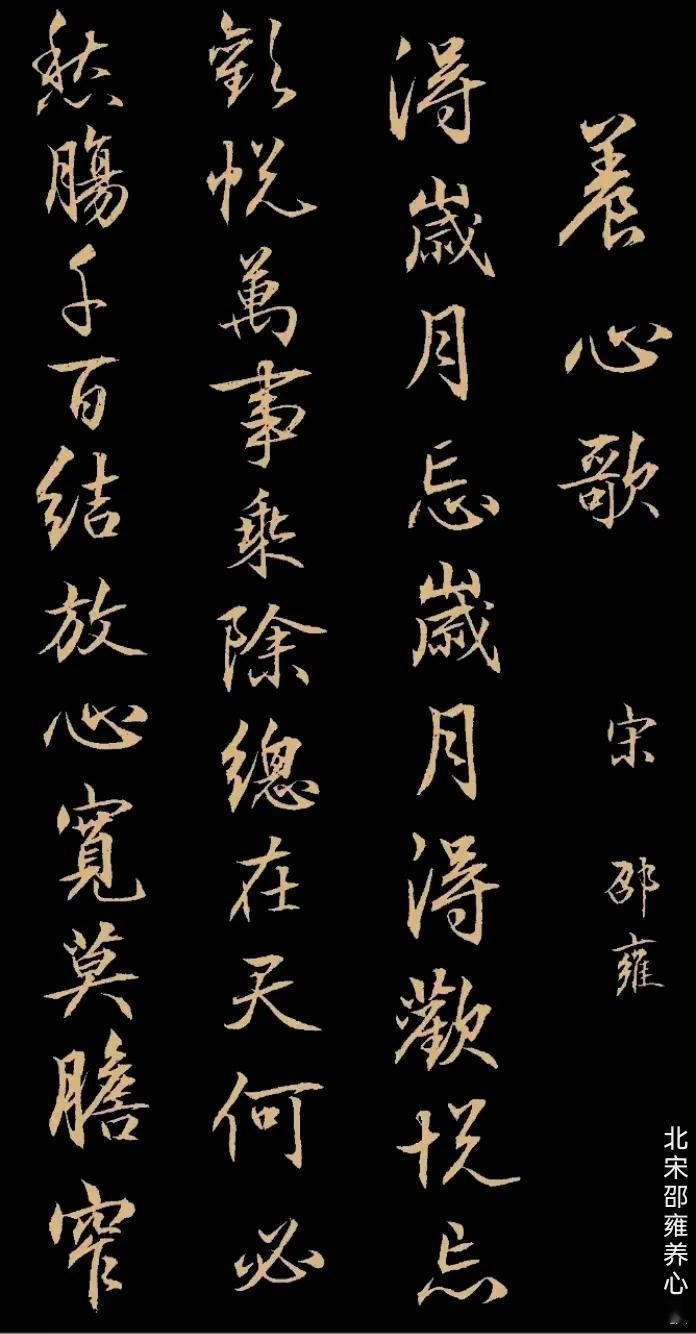 養心歌 宋 邵雍
得歲月忘歲月得歡悦忘
歡悦萬事乘除總在天何必
愁腸千百結放心寬莫膽窄
北宋邵雍养心